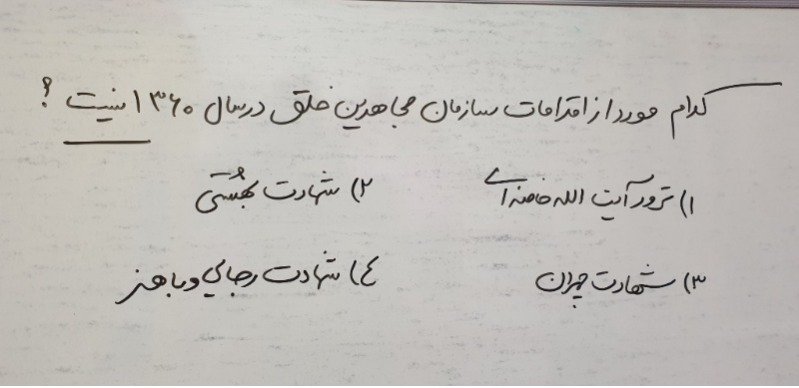 کدام مورد از اقدامات سازمان مجاهدین خلق در سال ۱۳۶۰ نیست ؟
۱) ترور آیت الله خامنه ای ۲) شهادت بهشتی
۳) شهادت چمران ۴) شهادت رجایی و باهنر